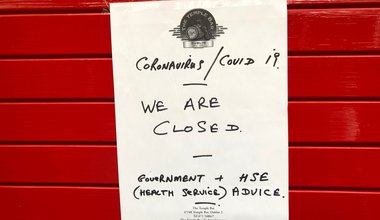 THE TEMPLE BAR
CORONAVIRUS / COVID 19.
WE ARE
CLOSED.
GOVERNMENT + HSE
(HEALTH SERVICE) ADVICE.
The Temple Bar
47/48 Temple Bar, Dublin 2